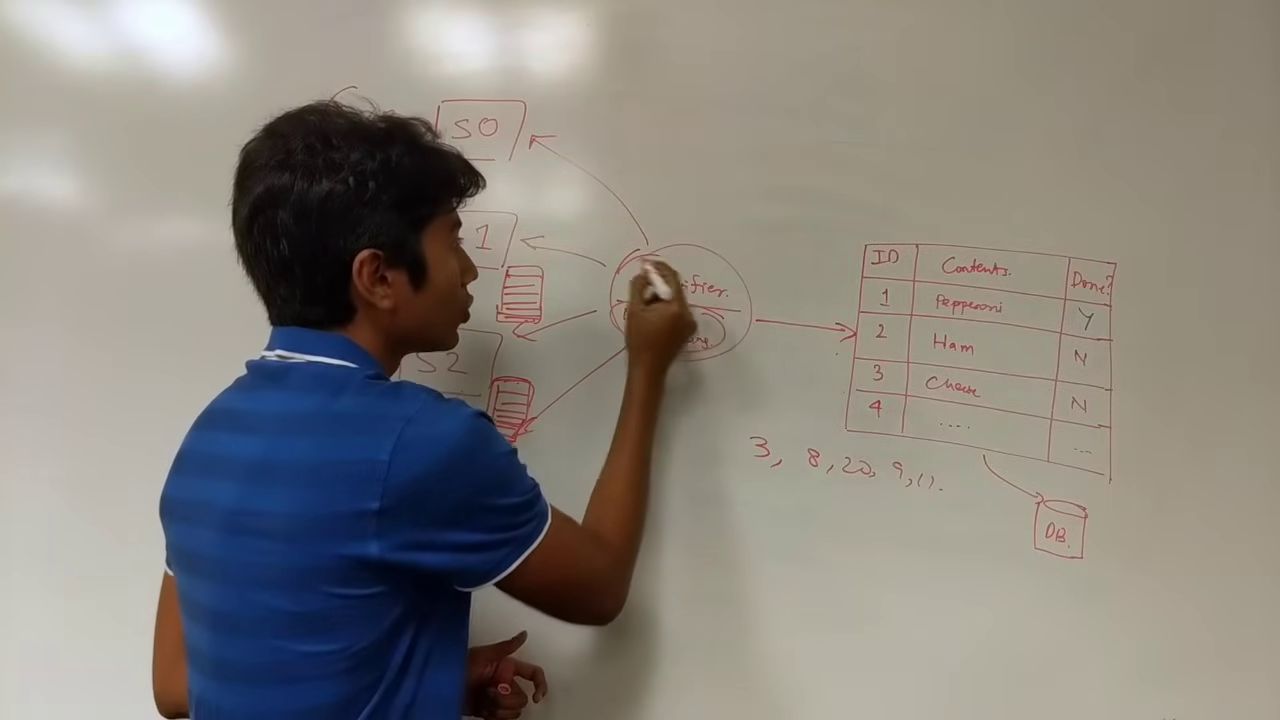 S0
1
S2
ifier.
ID Contents. Done?
1 Pepperoni Y
2 Ham N
3 Cheese N
4 .... ...
3, 8, 20, 9, 11.
DB.